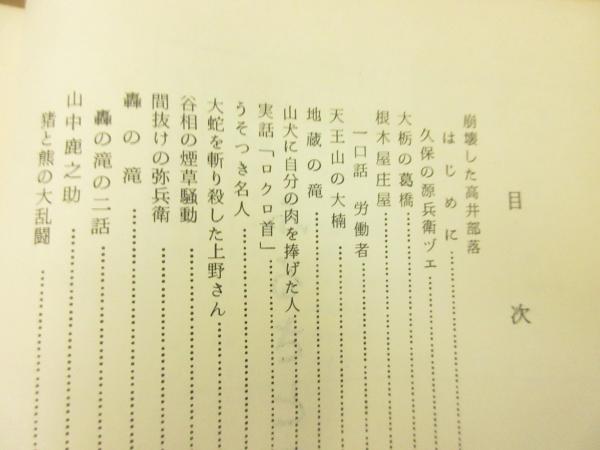 目次
崩壊した高井部落
はじめに
久保の源兵衛ヅェ
大栃の葛橋
根木屋庄屋
一口話 労働者
天王山の大楠
地蔵の滝
山犬に自分の肉を捧げた人
実話「ロクロ首」
うそつき名人
大蛇を斬り殺した上野さん
谷相の煙草騒動
間抜けの弥兵衛
轟の滝
轟の滝の二話
山中鹿之助
猪と熊の大乱闘